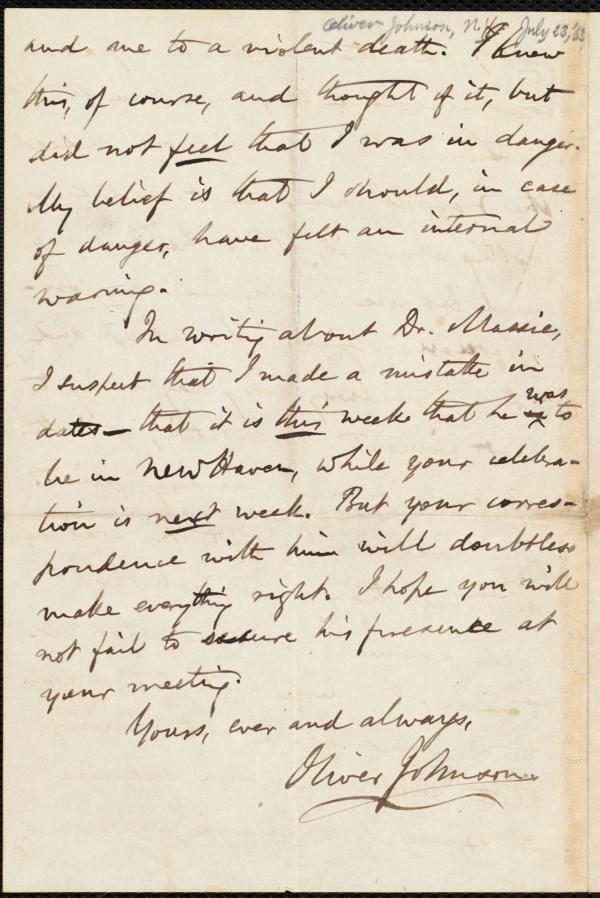 Oliver Johnson, N.Y. July 23, '63
and me to a violent death. I knew
this, of course, and thought of it, but
did not feel that I was in danger.
My belief is that I should, in case
of danger, have felt an internal
warning.
In writing about Dr. Massie,
I suspect that I made a mistake in
dates — that it is this week that he was to
be in New Haven, while your celebra-
tion is next week. But your corres-
pondence with him will doubtless
make everything right. I hope you will
not fail to secure his presence at
your meeting.
Yours, ever and always,
Oliver Johnson.